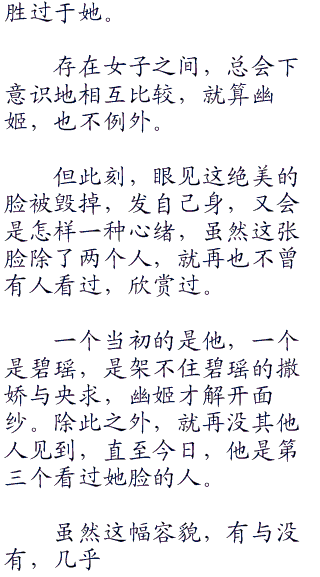 胜过于她。
存在女子之间，总会下
意识地相互比较，就算幽
姬，也不例外。
但此刻，眼见这绝美的
脸被毁掉，发自己身，又会
是怎样一种心绪，虽然这张
脸除了两个人，就再也不曾
有人看过，欣赏过。
一个当初的是他，一个
是碧瑶，是架不住碧瑶的撒
娇与央求，幽姬才解开面
纱。除此之外，就再没其他
人见到，直至今日，他是第
三个看过她脸的人。
虽然这幅容貌，有与没
有，几乎